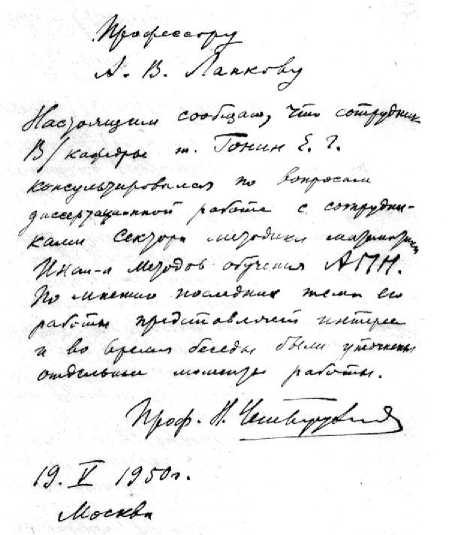 Профессору
А. В. Ланкову
Настоящим сообщаю, что сотрудник
В/кафедры т. Гонин Е. Г.
консультировался по вопросам
диссертационной работы с сотрудни-
ками Сектора методики математики
Инст-а методов обучения АПН.
По мнению последних тема его
работы представляет интерес
и во время беседы были уточнены
отдельные моменты работы.
Проф. Н. Четверухин
19. V 1950г.
Москва